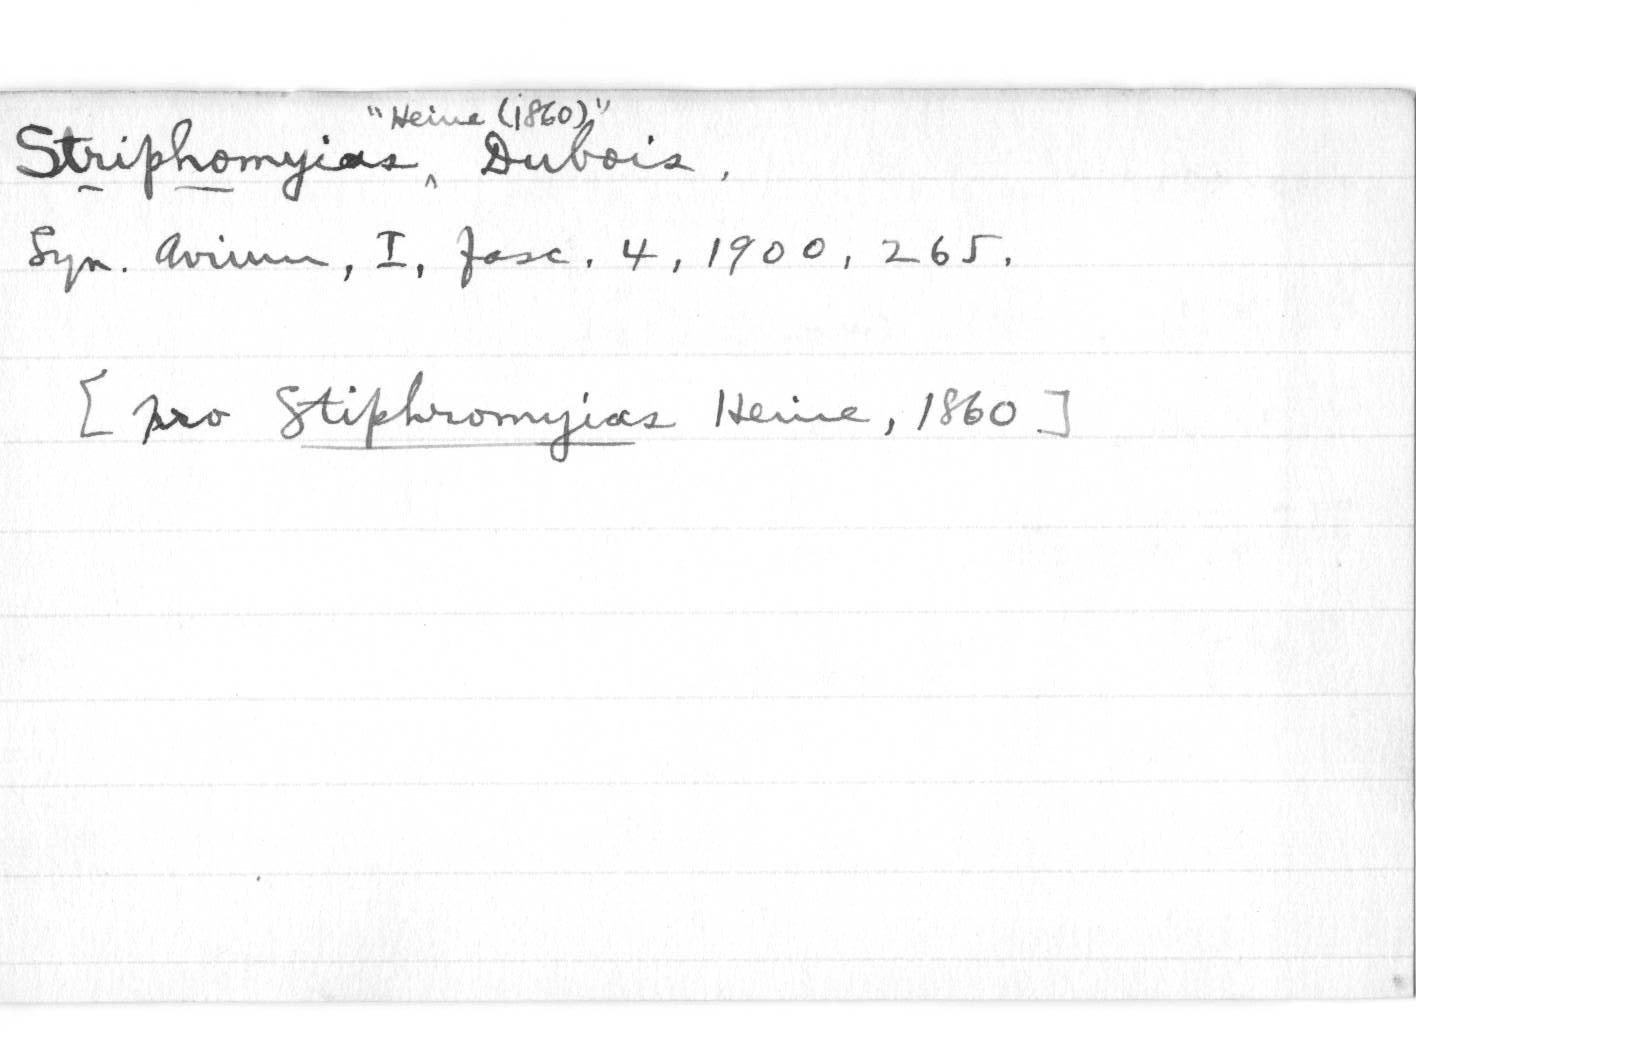 Striphomyias "Heine (1860)" Dubois,
Syn. Avium, I, fasc. 4, 1900, 265.
[ pro Stiphromyias Heine, 1860 ]